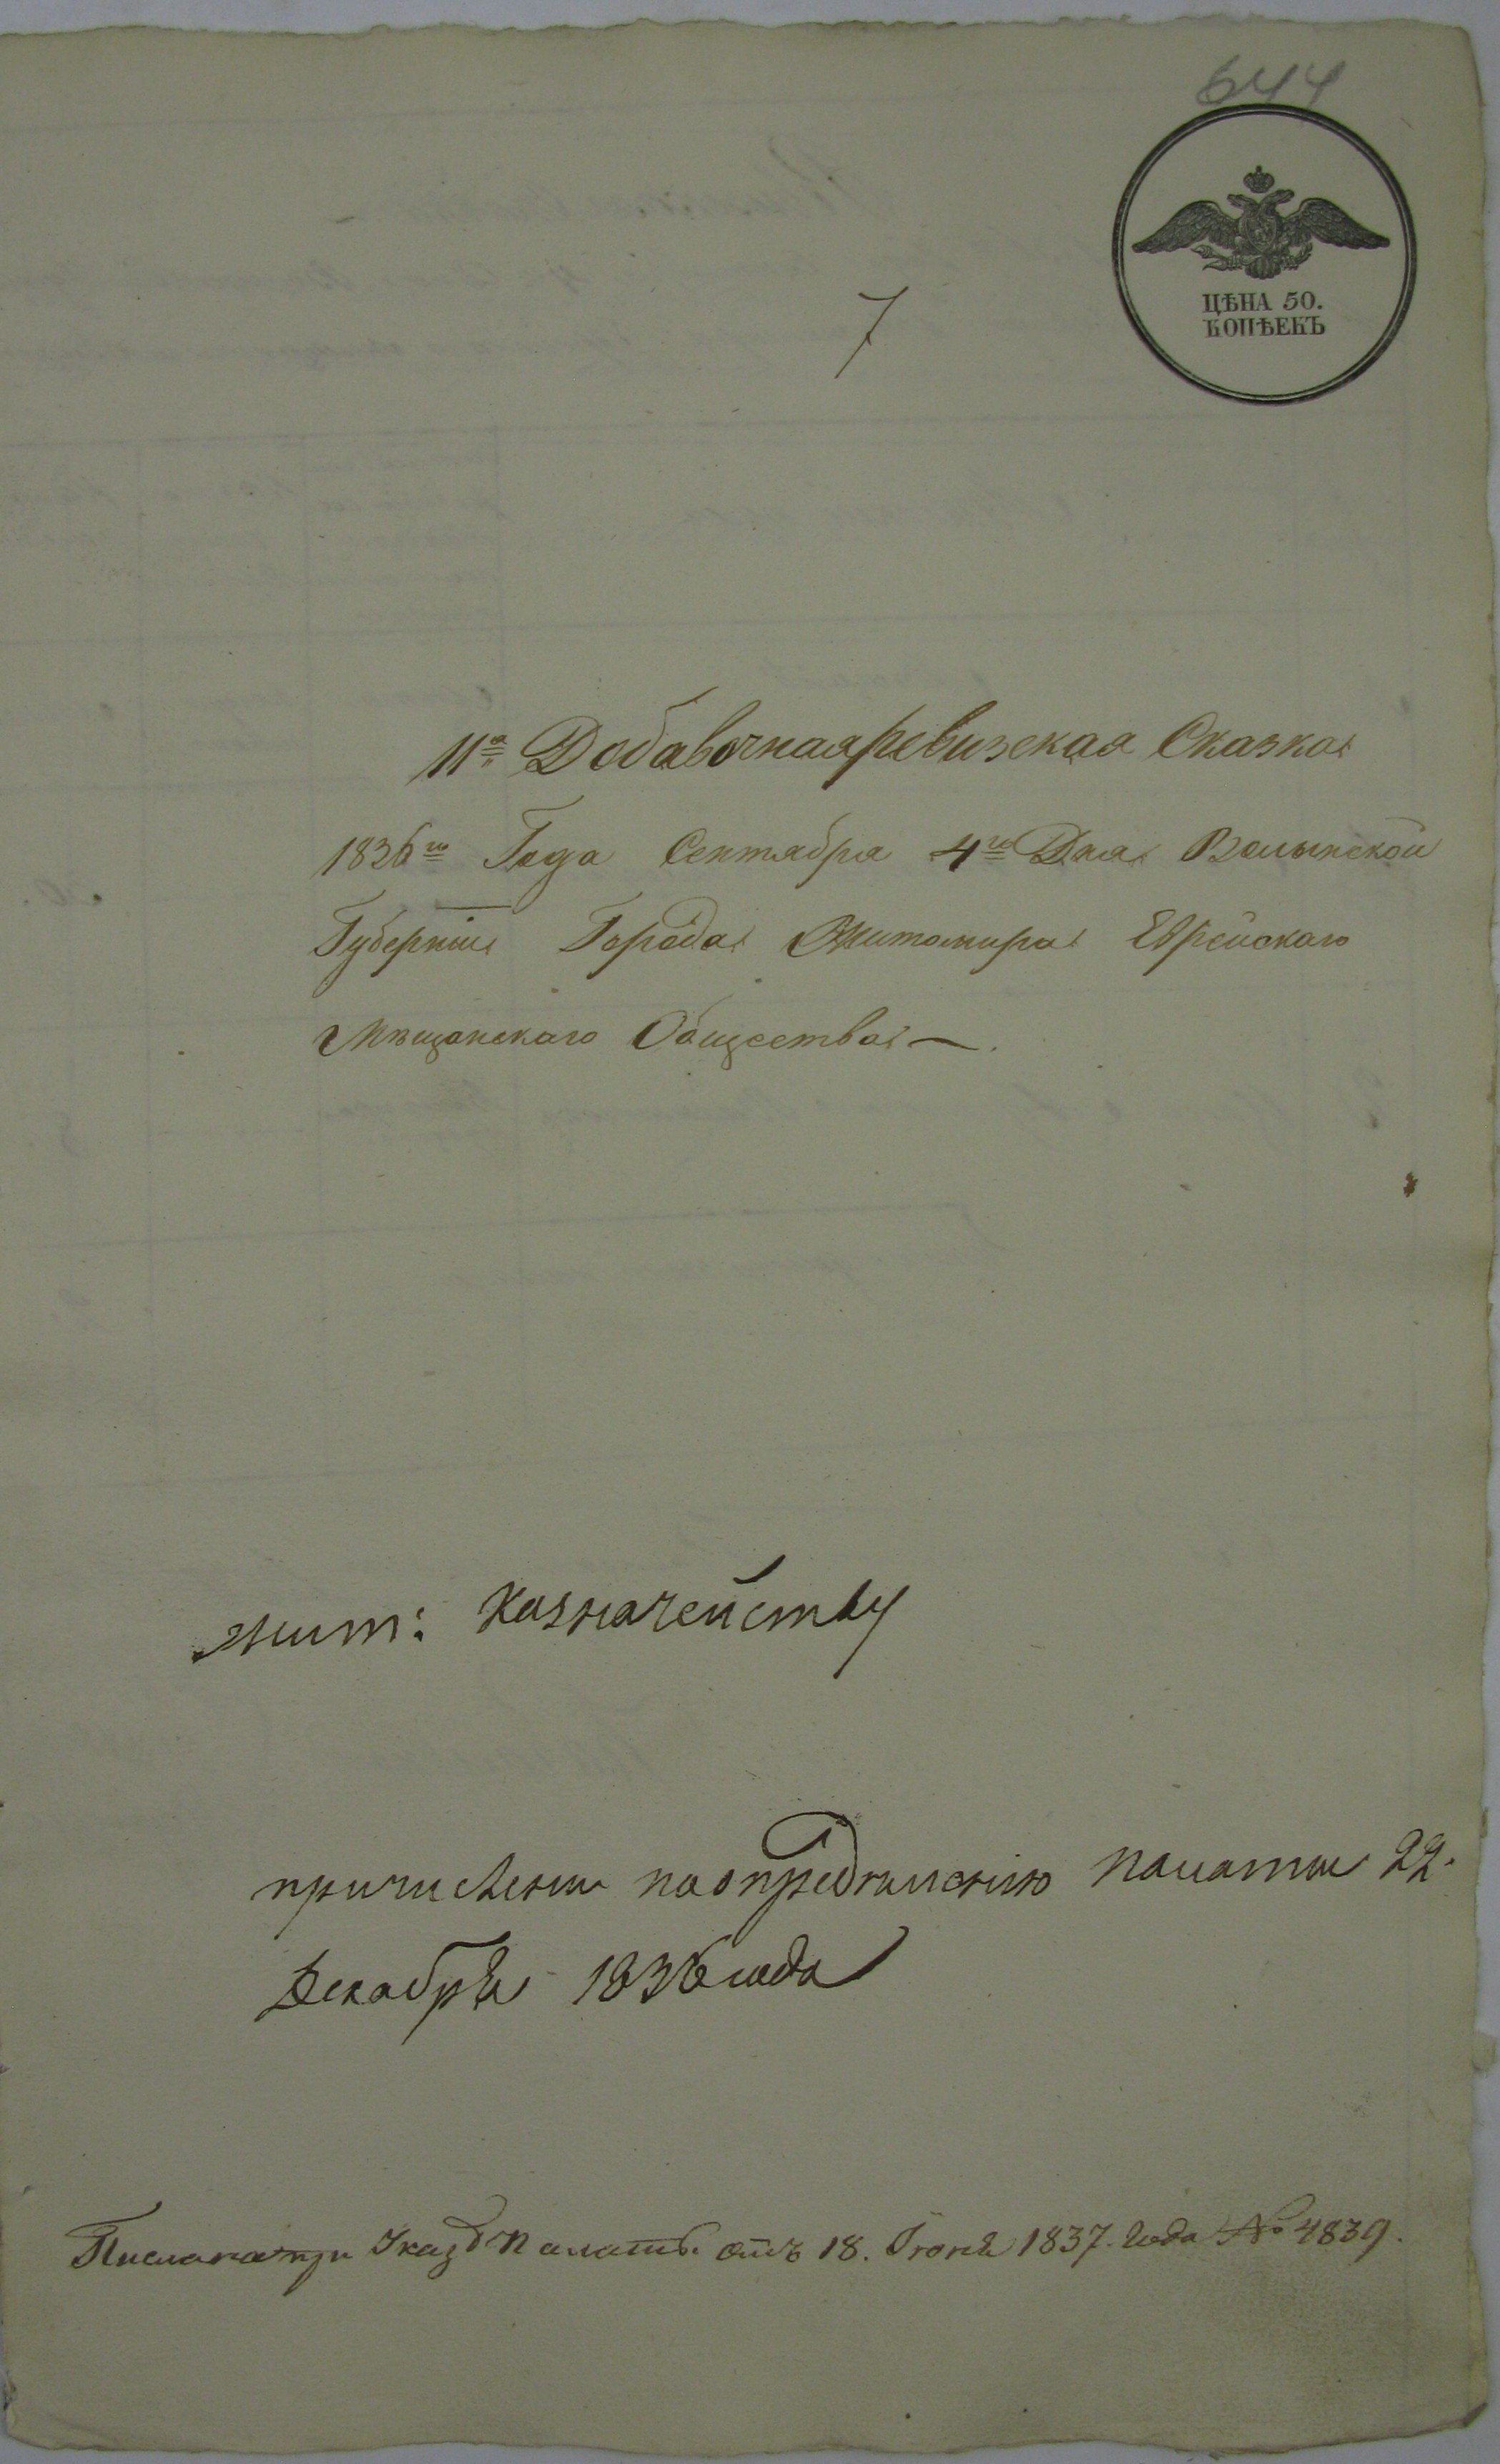 644
ЦѢНА 50.
КОПѢЕКЪ
7
11я Добавочная ревизская Сказка
1836го Года Сентября 4го Дня Волынской
Губерніи Города Житомира Еврейскаго
Мѣщанскаго Общества
жит: казначейству
причислены по опредѣленію палаты 22.
Декабря 1836 года
при Указѣ Палаты отъ 18. Іюня 1837. года № 4839.